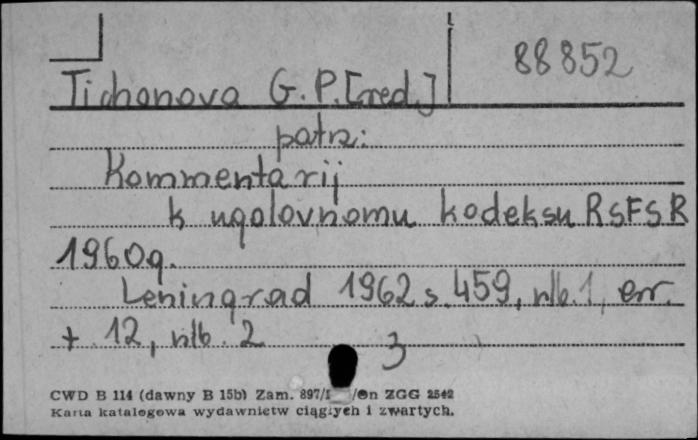 88852
Tichonova G. P. [red.]
patrz:
Kommentarij
k ugolovnomu kodeksu RSFSR
1960g.
Leningrad 1962 s. 459, nlb. 1, err.
+ 12, nlb. 2
3
CWD B 114 (dawny B 15b) Zam. 897/ /Dn ZGG 2542
Karta katalogowa wydawnictw ciągłych i zwartych.